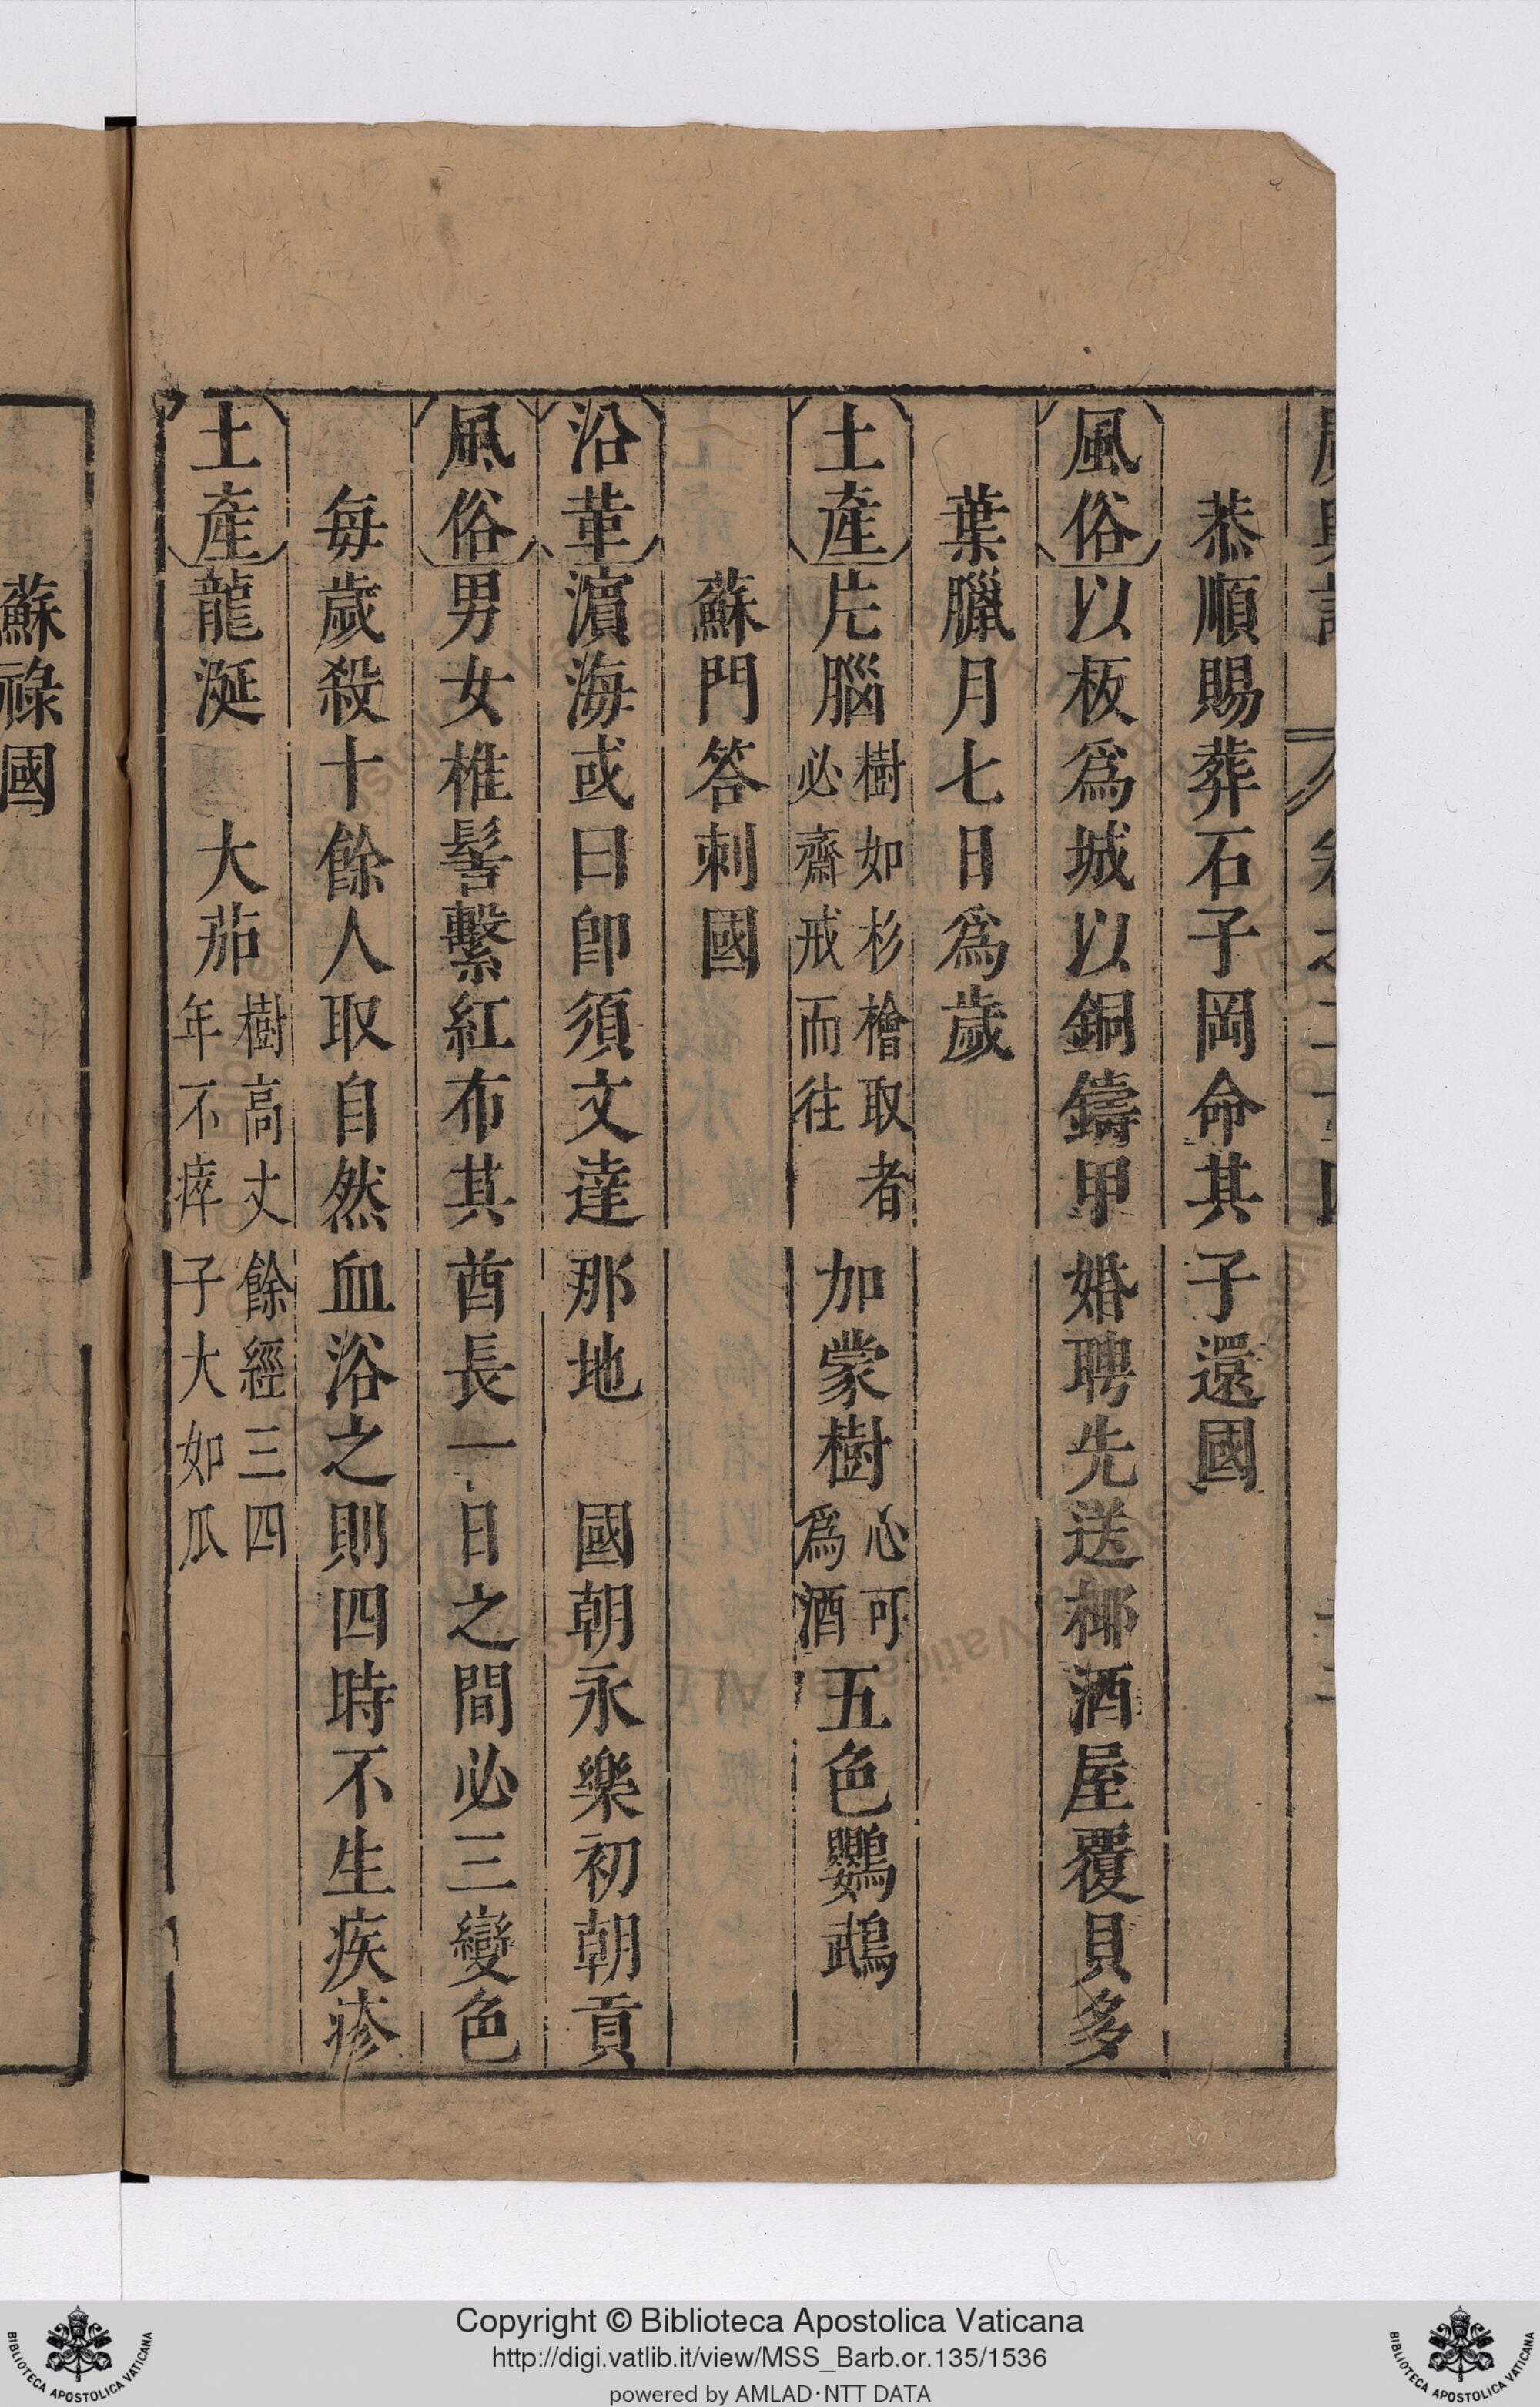 恭順賜葬石子岡命其子還國
風俗以板爲城以銅鑄甲婚聘先送椰酒屋覆貝多
葉臘月七日爲歲
土產片腦樹如杉檜取者必齋戒而往加蒙樹心可爲酒五色鸚鵡
蘇門答剌國
沿革濵海或曰卽須文達那地 國朝永樂初朝貢
風俗男女椎髻繫紅布其酋長一日之間必三變色
每歲殺十餘人取自然血浴之則四時不生疾疹
土產龍涎 大茄樹高丈餘經三四年不瘁子大如瓜
蘇祿國
Copyright © Biblioteca Apostolica Vaticana
http://digi.vatlib.it/view/MSS_Barb.or.135/1536
powered by AMLAD·NTT DATA
BIBLIOTECA APOSTOLICA VATICANA
BIBLIOTECA APOSTOLICA VATICANA